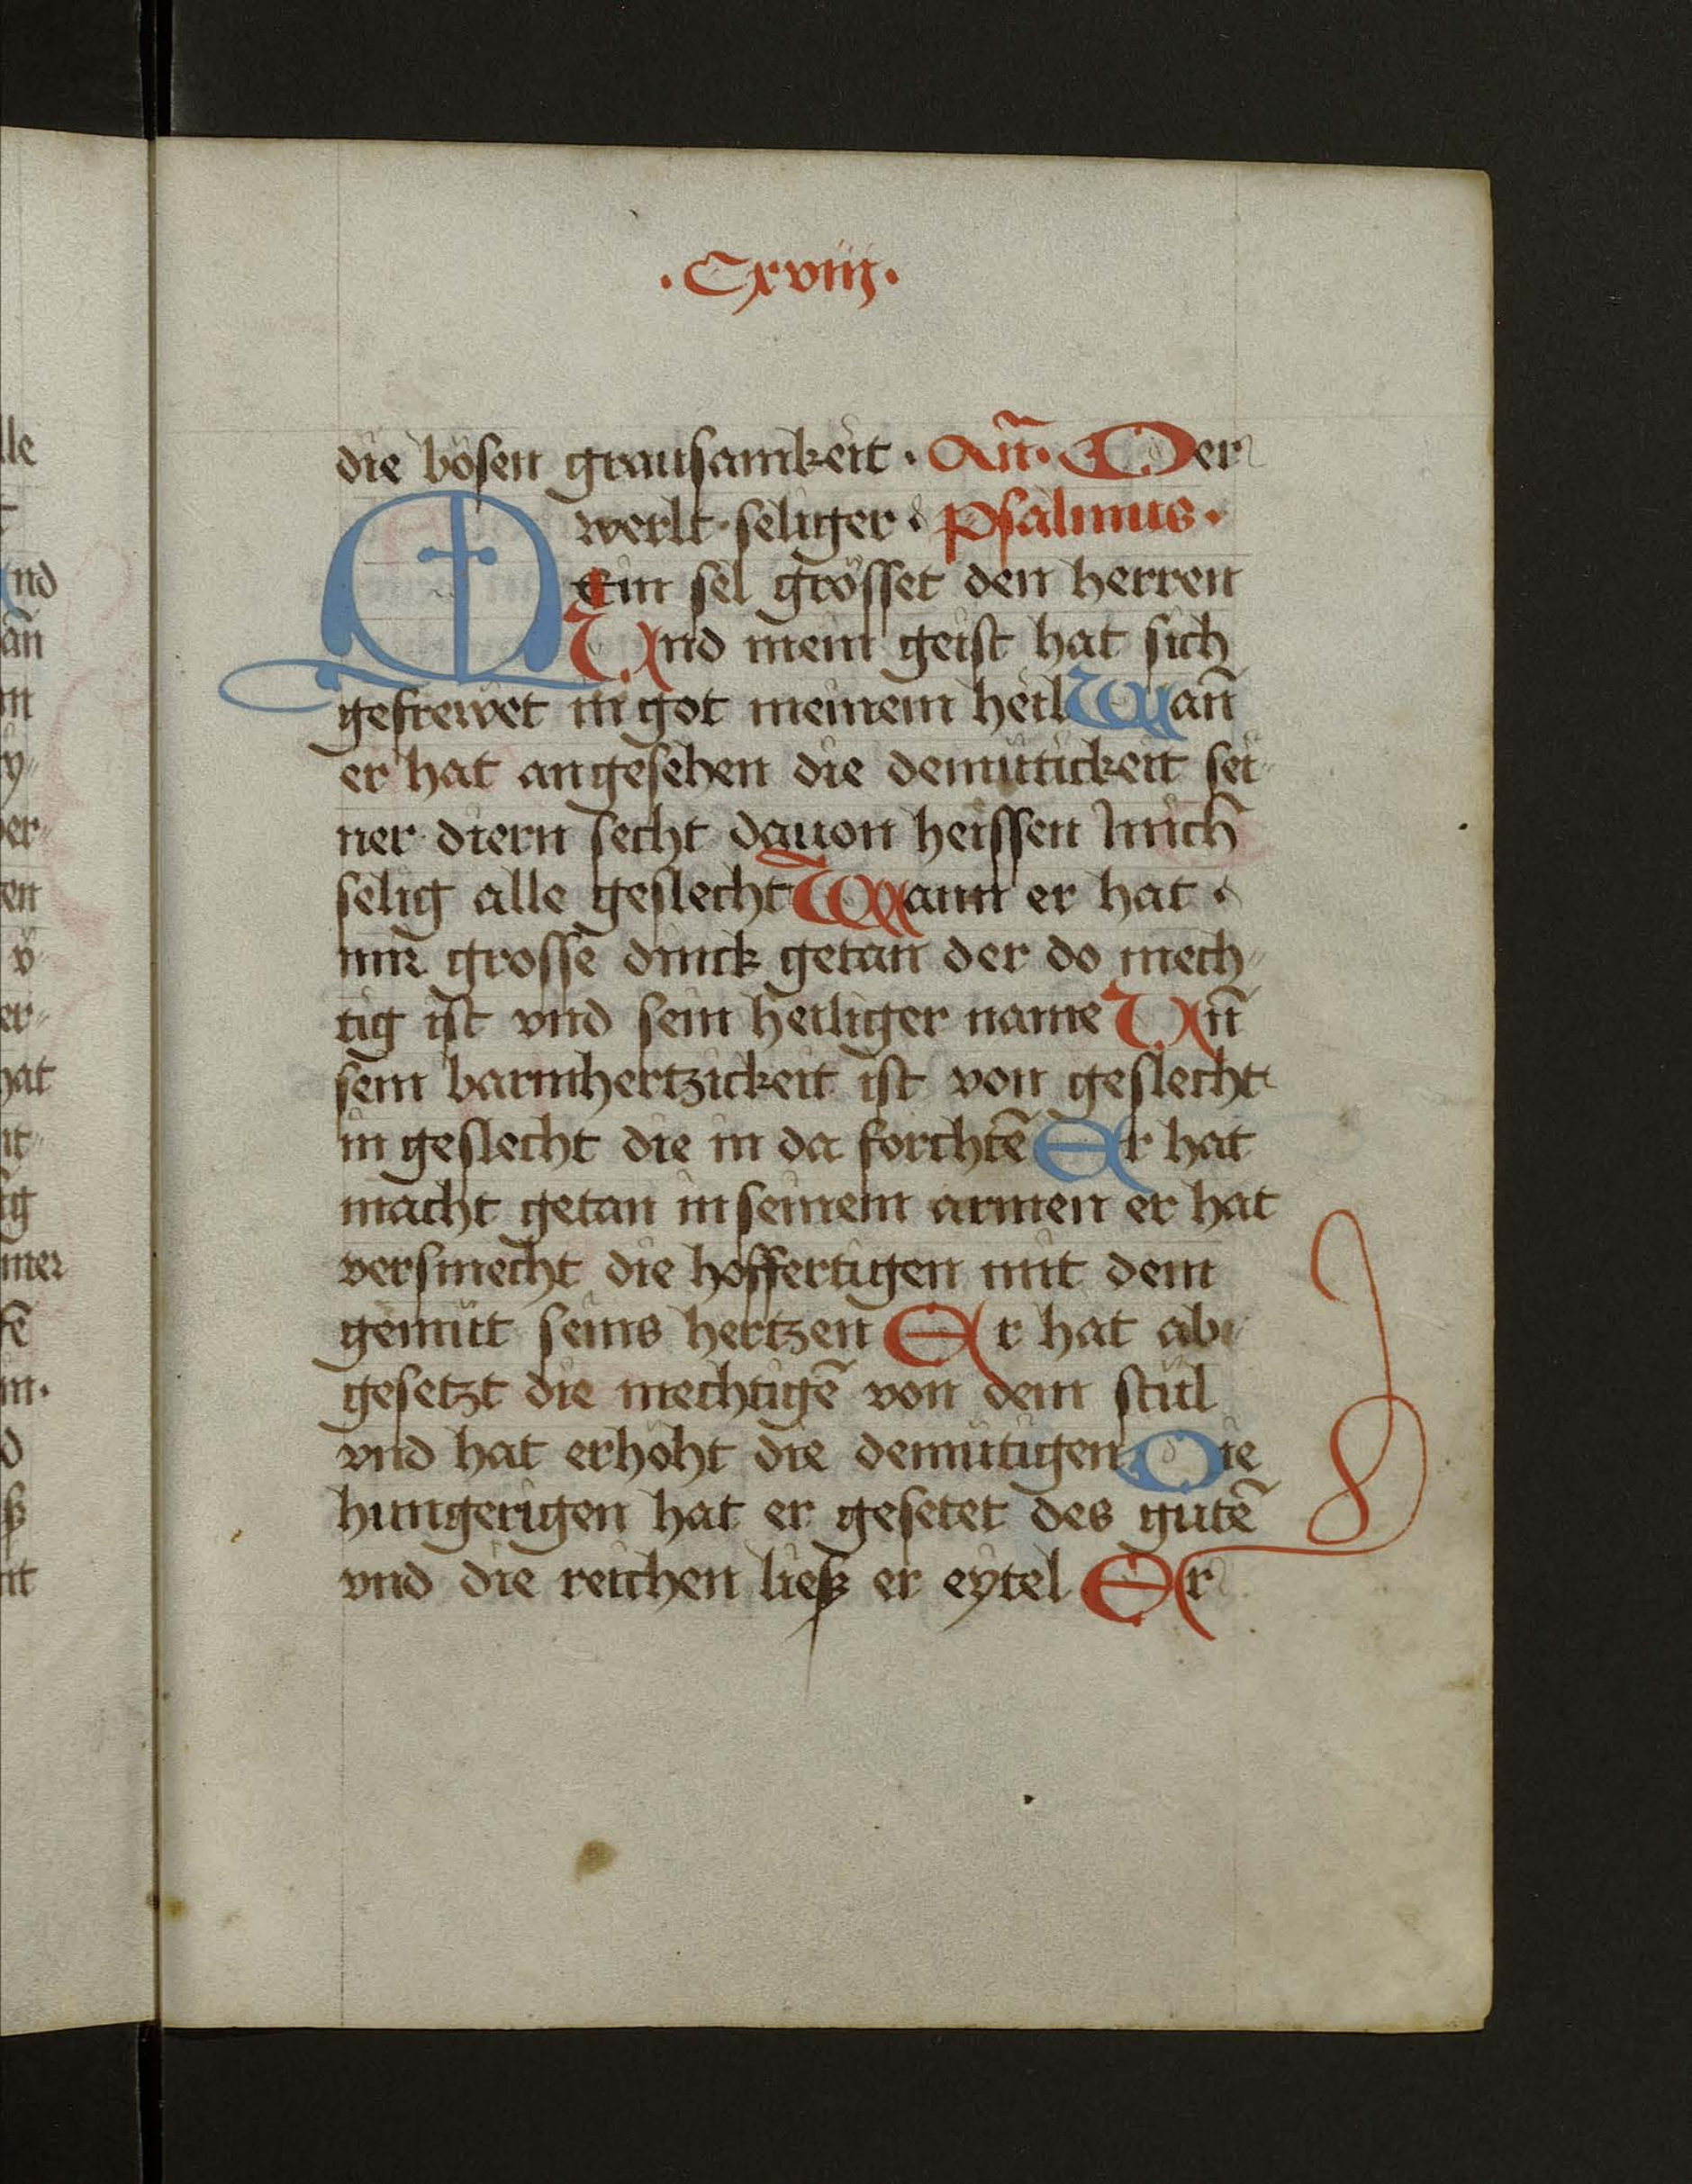 ·Cxviij·
die bösen grausamkeit · An̄· Der
werlt seliger · psalmus·
Mein sel grösset den herren
Und mein geist hat sich
gefrewet in got meinem heil Wan̄
er hat angesehen die demütickeit sei
ner diern secht dauon heissen mich
selig alle geslecht Wann er hat
mir grosse dinck getan der do mech
tig ist vnd sein heiliger name Un̄
sein barmhertzickeit ist von geslecht
in geslecht die in da forchtē Er hat
macht getan in seinem armen er hat
versmecht die hoffertigen mit dem
gemüt seins hertzen Er hat ab
gesetzt die mechtigē von dem stül
vnd hat erhöht die demütigen Die
hungerigen hat er gesetet des gutē
vnd die reichenließ er eytel Er